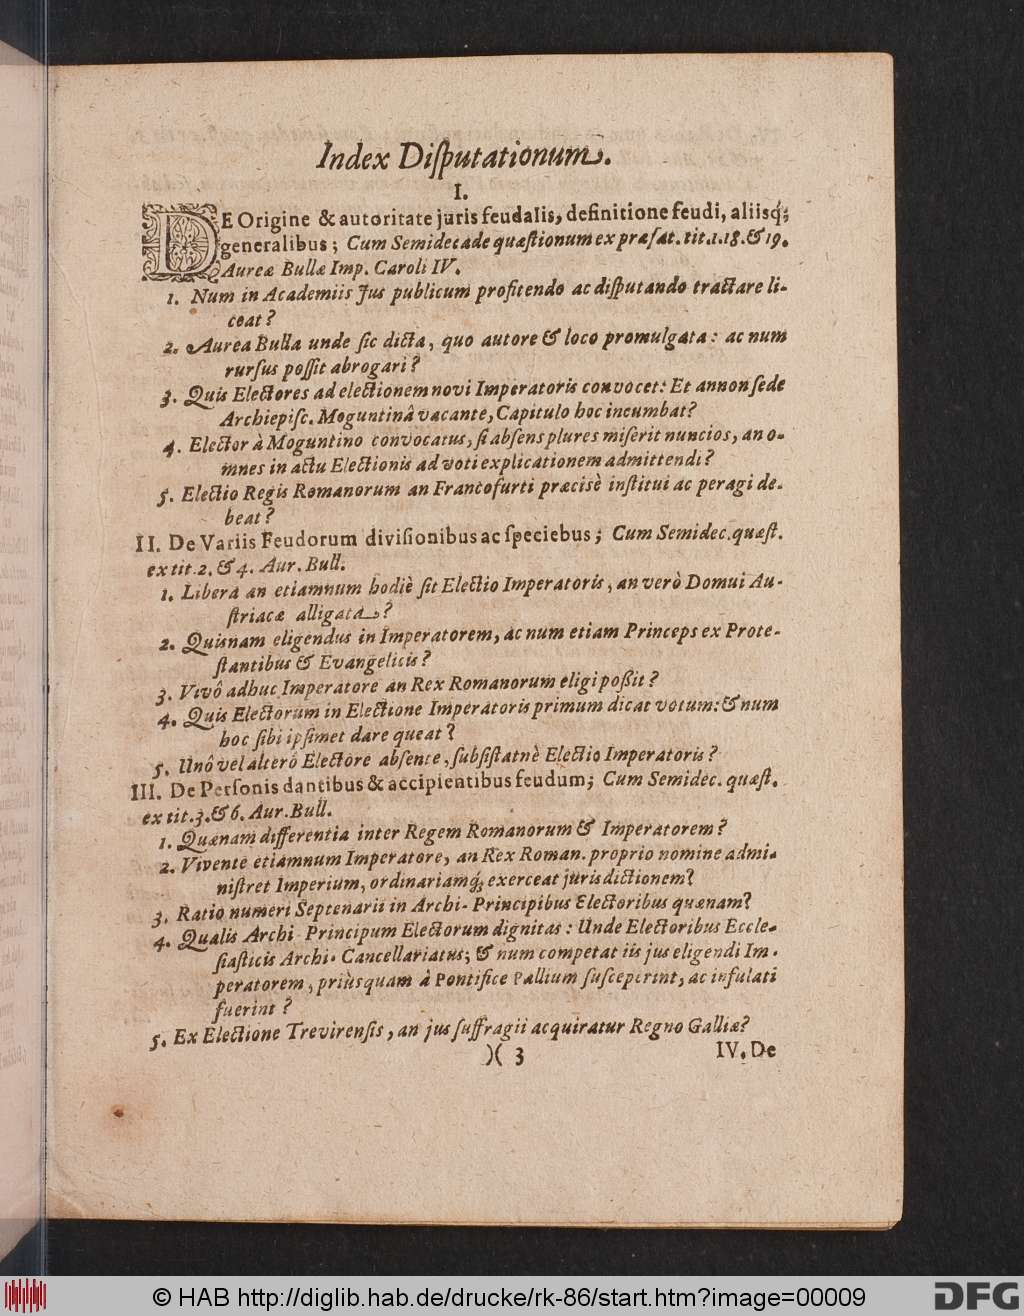 Index Diſputationum.
I.
DE Origine & autoritate juris feudalis, definitione feudi, aliisq́;
generalibus; Cum Semidecade quæſtionum ex præfat. tit. 1. 18. & 19.
Aureæ Bullæ Imp. Caroli IV.
1. Num in Academiis Jus publicum profitendo ac diſputando tractare li-
ceat?
2. Aurea Bulla unde ſic dicta, quo autore & loco promulgata: ac num
rurſus poſſit abrogari?
3. Quis Electores ad electionem novi Imperatoris convocet: Et annon ſede
Archiepiſc. Moguntinâ vacante, Capitulo hoc incumbat?
4. Elector à Moguntino convocatus, ſi abſens plures miſerit nuncios, an o-
mnes in actu Electionis ad voti explicationem admittendi?
5. Electio Regis Romanorum an Francofurti præcisè inſtitui ac peragi de-
beat?
II. De Variis Feudorum diviſionibus ac ſpeciebus; Cum Semidec. quæſt.
ex tit. 2. & 4. Aur. Bull.
1. Libera an etiamnum hodiè ſit Electio Imperatoris, an verò Domui Au-
ſtriacæ alligata?
2. Quisnam eligendus in Imperatorem, ac num etiam Princeps ex Prote-
ſtantibus & Evangelicis?
3. Vivô adhuc Imperatore an Rex Romanorum eligi poßit?
4. Quis Electorum in Electione Imperatoris primum dicat votum: & num
hoc ſibi ipſimet dare queat?
5. Unô vel alterô Electore abſente, ſubſiſtatnè Electio Imperatoris?
III. De Perſonis dantibus & accipientibus feudum; Cum Semidec. quæſt.
ex tit. 3. & 6. Aur. Bull.
1. Quænam differentia inter Regem Romanorum & Imperatorem?
2. Vivente etiamnum Imperatore, an Rex Roman. proprio nomine admi-
niſtret Imperium, ordinariamq́; exerceat jurisdictionem?
3. Ratio numeri Septenarii in Archi-Principibus Electoribus quænam?
4. Qualis Archi-Principum Electorum dignitas: Unde Electoribus Eccle-
ſiaſticis Archi-Cancellariatus; & num competat iis jus eligendi Im-
peratorem, priùsquam à Pontifice Pallium ſuſceperint, ac infulati
fuerint?
5. Ex Electione Trevirenſis, an jus ſuffragii acquiratur Regno Galliæ?
)( 3
IV. De
© HAB http://diglib.hab.de/drucke/rk-86/start.htm?image=00009
DFG